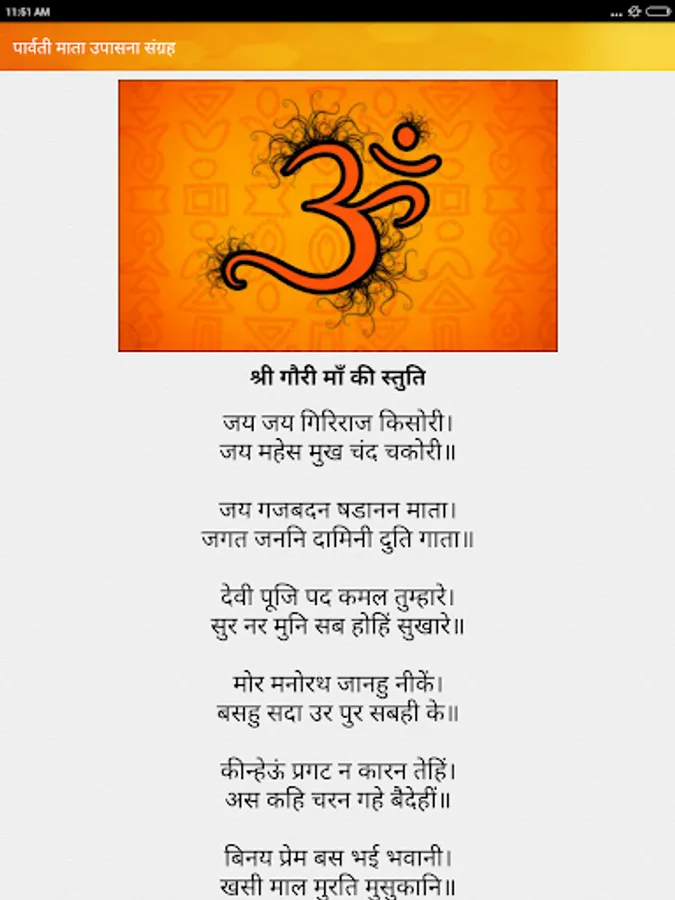 11:51 AM
...
पार्वती माता उपासना संग्रह
ॐ
श्री गौरी माँ की स्तुति
जय जय गिरिराज किसोरी।
जय महेस मुख चंद चकोरी॥
जय गजबदन षडानन माता।
जगत जननि दामिनी दुति गाता॥
देवी पूजि पद कमल तुम्हारे।
सुर नर मुनि सब होहिं सुखारे॥
मोर मनोरथ जानहु नीकें।
बसहु सदा उर पुर सबही के॥
कीन्हेऊं प्रगट न कारन तेहिं।
अस कहि चरन गहे बैदेहीं॥
बिनय प्रेम बस भई भवानी।
खसी माल मुरति मुसुकानि॥